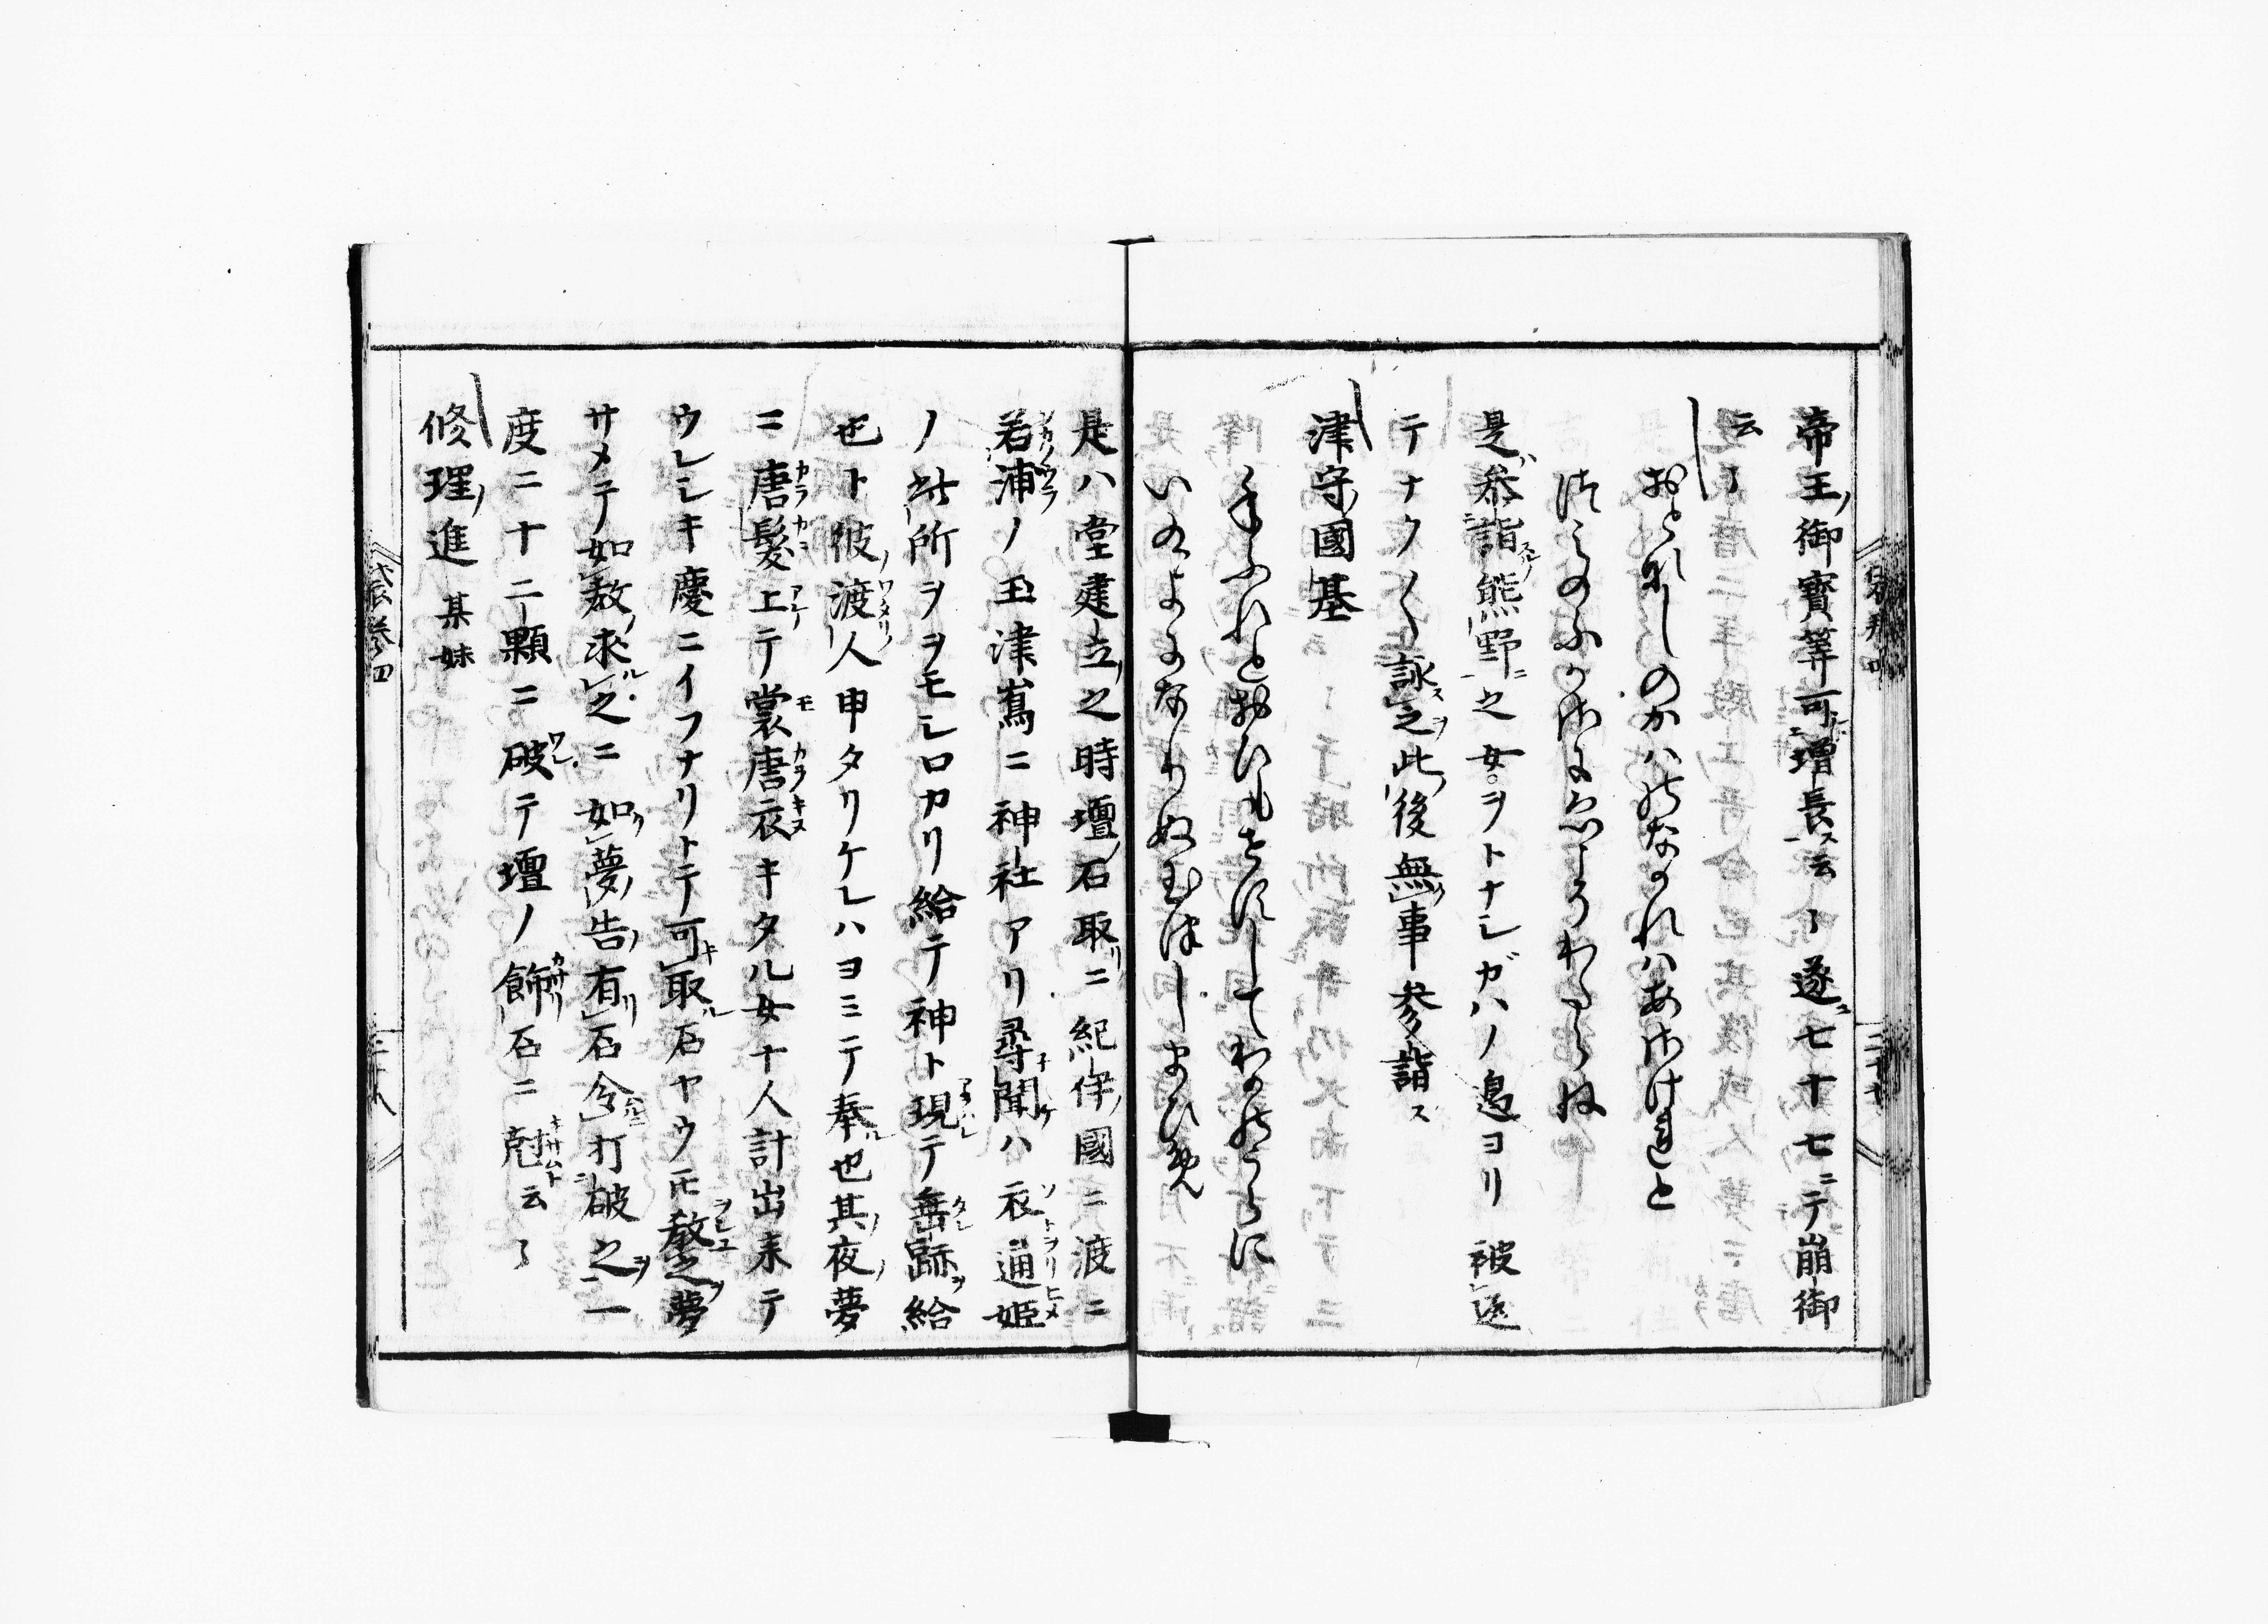 帝王御寳筭可増長云々遂七十七ニテ崩御
云々
おとなしのかはのなかれはあさけれと
つみのふかきにえこそわたらね
是参詣熊野之女ヲヲトナシガハノ邊ヨリ被返
テナク〳〵詠之此後無事参詣ス
津守國基
年ふれとおいもせすしてわかのうらに
いくよになりぬたまつしまひめ
是ハ堂建立之時壇石取ニ紀伊國ニ渡ニ
若浦ノ玉津嶌ニ神社アリ尋聞ハ衣通姫
ノ此所ヲヲモシロカリ給テ神ト現テ垂跡給
也ト彼渡人申タリケレハヨミテ奉也其夜夢
ニ唐髪上テ裳唐衣キタル女十人計出来テ
ウレシキ慶ニイフナリトテ可取石ヤウモ教之夢
サメテ如教求之ニ如夢告有石令打破之一
度ニ十二顆ニ破テ壇ノ飾石ニ尅云々
修理進某妹